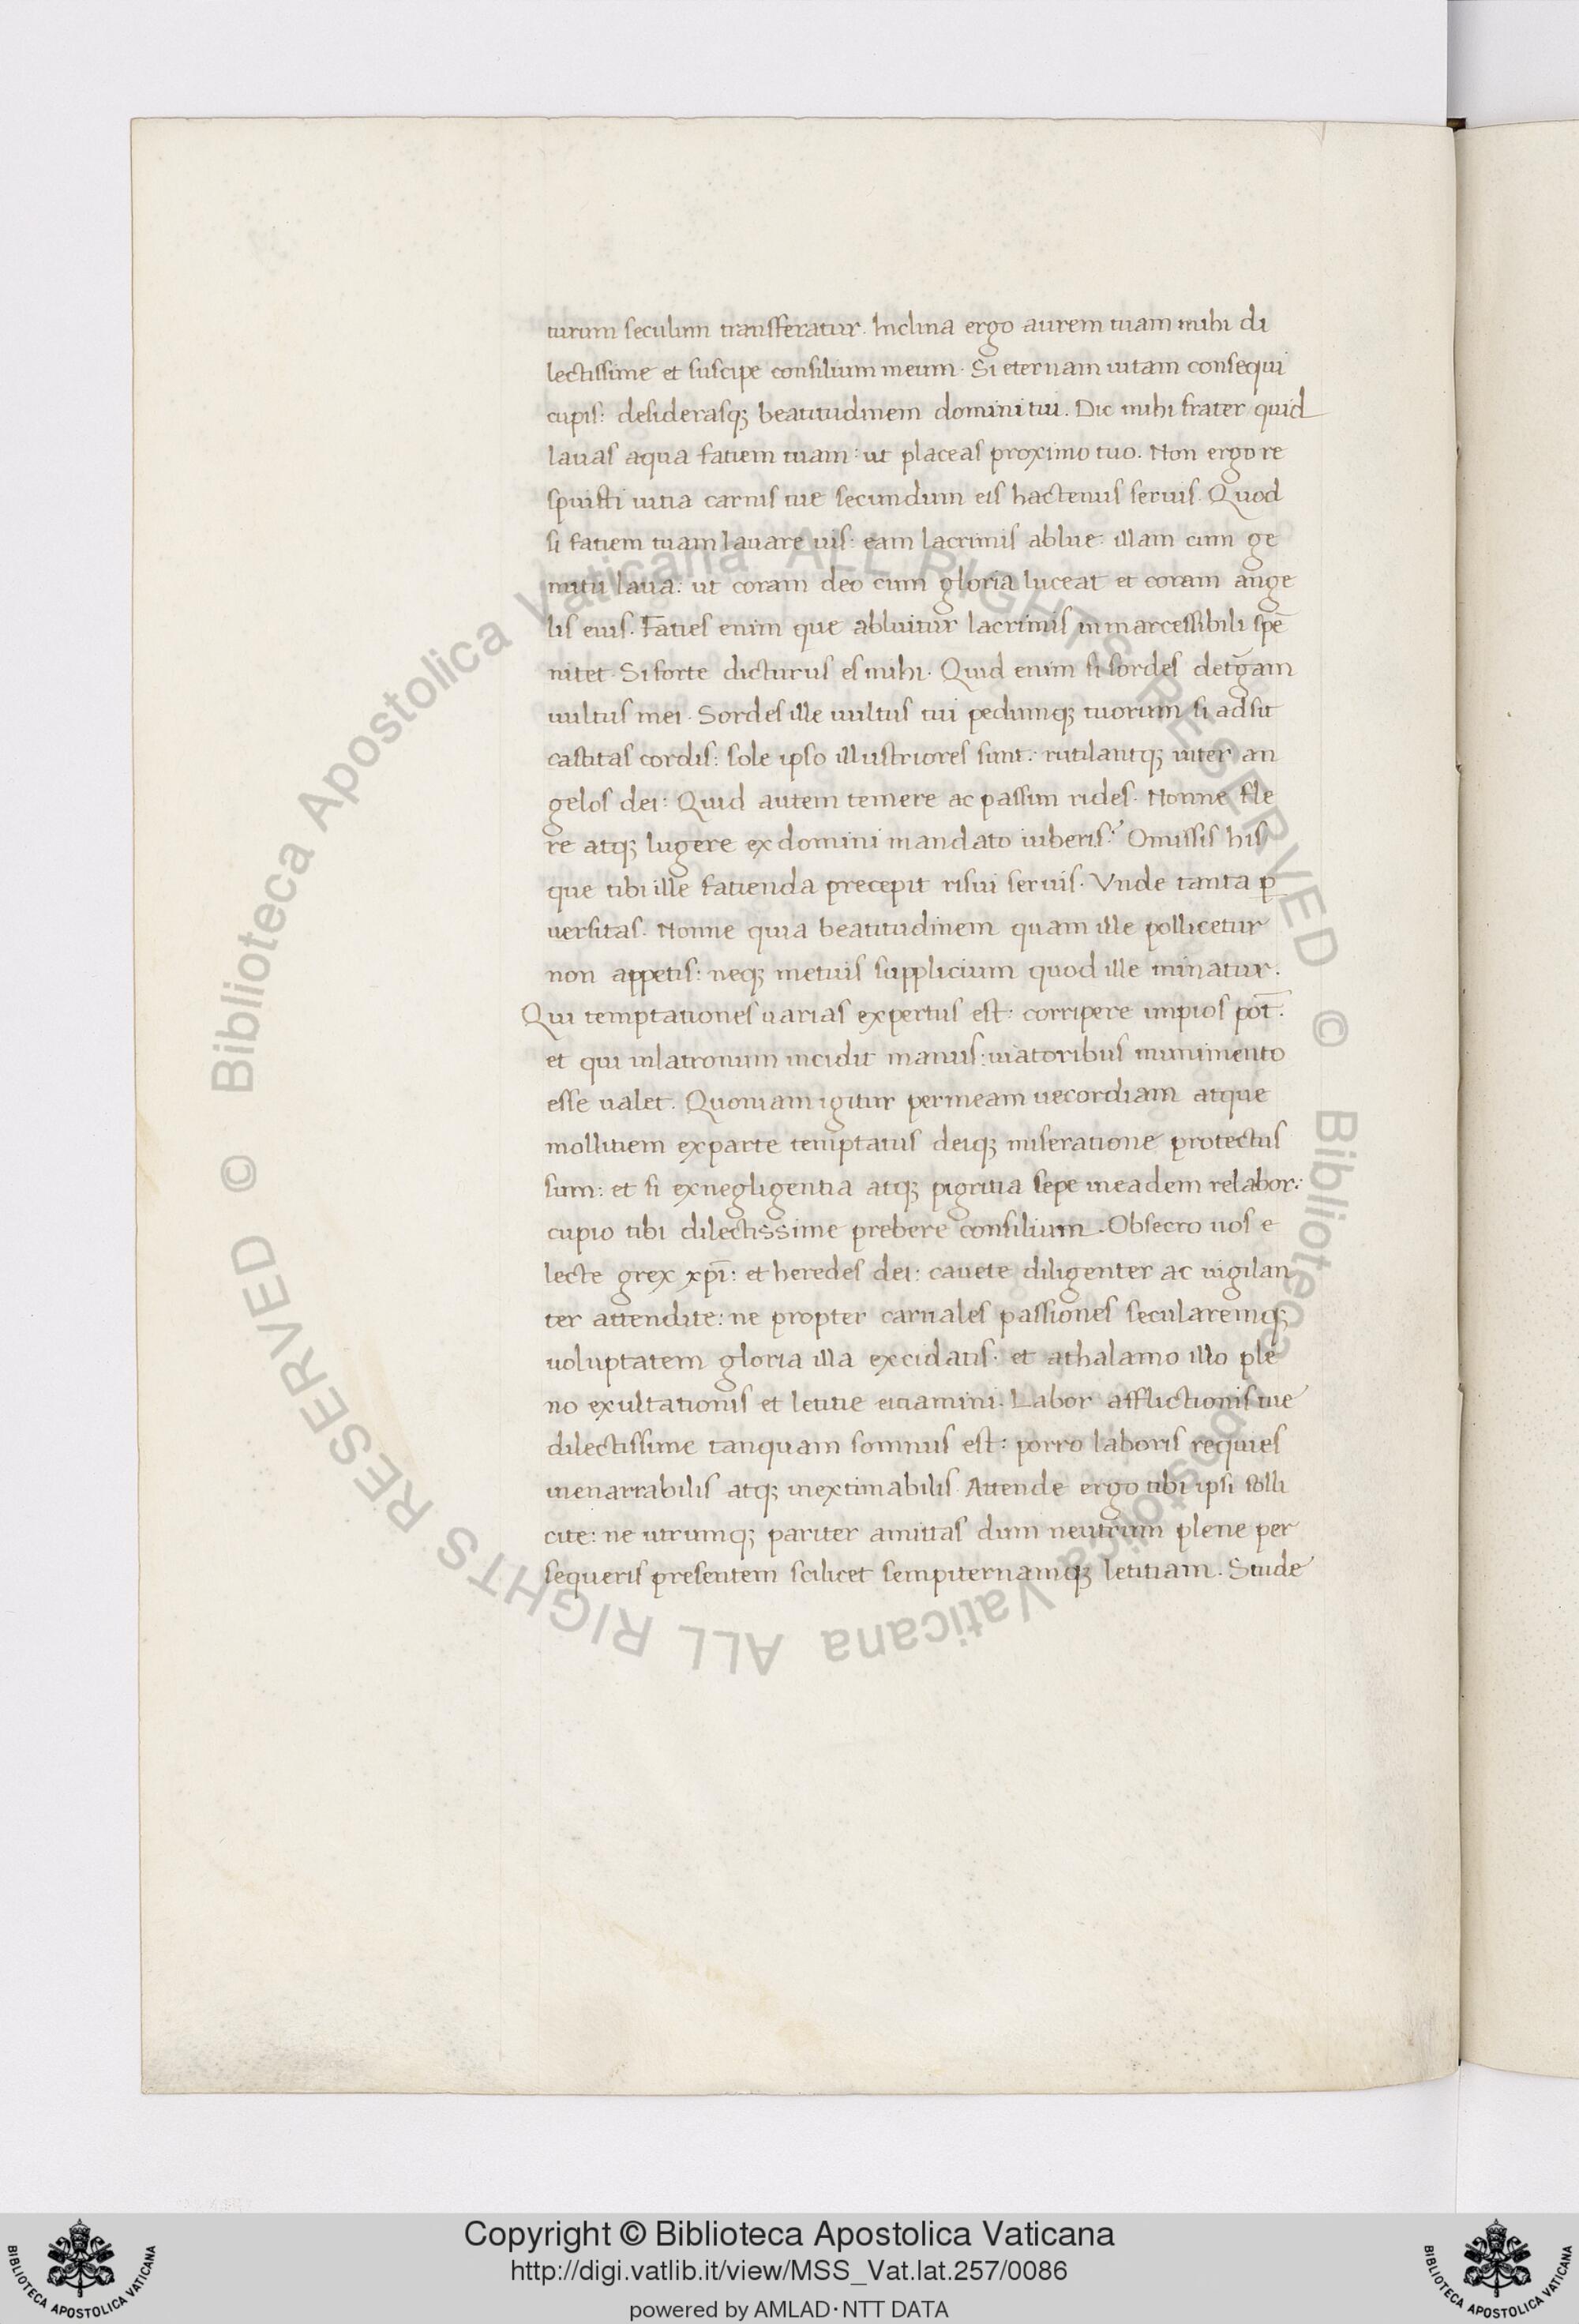 turum seculum transferatur. Inclina ergo aurem tuam mihi di
lectissime et suscipe consilium meum. Si eternam uitam consequi
cupis: desiderasq; beatitudinem domini tui. Dic mihi frater quid
lauas aqua fatiem tuam: ut placeas proximo tuo. Non ergo re
spuisti uitia carnis tue secundum eis hactenus seruis. Quod
si fatiem tuam lauare uis: eam lacrimis ablue: illam cum ge
mitu laua: ut coram deo cum gloria luceat et coram ange
lis eius. Faties enim que abluitur lacrimis inmarcessibili spē
nitet. Si forte dicturus es mihi. Quid enim si sordes detḡam
uultus mei. Sordes ille uultus tui pedumq; tuorum si adsit
castitas cordis: sole ipso illustriores sunt: rutilantq; inter an
gelos dei: Quid autem temere ac passim rides. Nonne fle
re atq; lugere ex domini mandato iuberis? Omissis his
que tibi ille fatienda precepit risui seruis. Vnde tanta p̱
uersitas. Nonne quia beatitudinem quam ille pollicetur
non appetis: neq; metuis supplicium quod ille minatur.
Qui temptationes uarias expertus est: corripere impios pot̄:
et qui in latronum incidit manus: uiatoribus munimento
esse ualet. Quoniam igitur per meam uecordiam atque
mollitiem ex parte temptatus deiq; miseratione protectus
sum: et si ex negligentia atq; pigritia sepe in eadem relabor:
cupio tibi dilectissime prebere consilium. Obsecro uos e
lecte grex xp̄i: et heredes dei: cauete diligenter ac uigilan
ter attendite: ne propter carnales passiones secularemq;
uoluptatem gloria illa excidatis: et a thalamo illo ple
no exultationis et letitie eitiamini. Labor afflictionis tue
dilectissime tanquam somnus est: porro laboris requies
inenarrabilis atq; inextimabilis. Attende ergo tibi ipsi solli
cite: ne utrumq; pariter amittas dum neutrum plene per
sequeris presentem scilicet sempiternamq; letitiam. Stude
Biblioteca Apostolica Vaticana ALL RIGHTS RESERVED ©
Biblioteca Apostolica Vaticana ALL RIGHTS RESERVED ©
Copyright © Biblioteca Apostolica Vaticana
http://digi.vatlib.it/view/MSS_Vat.lat.257/0086
powered by AMLAD·NTT DATA
BIBLIOTECA APOSTOLICA VATICANA
BIBLIOTECA APOSTOLICA VATICANA